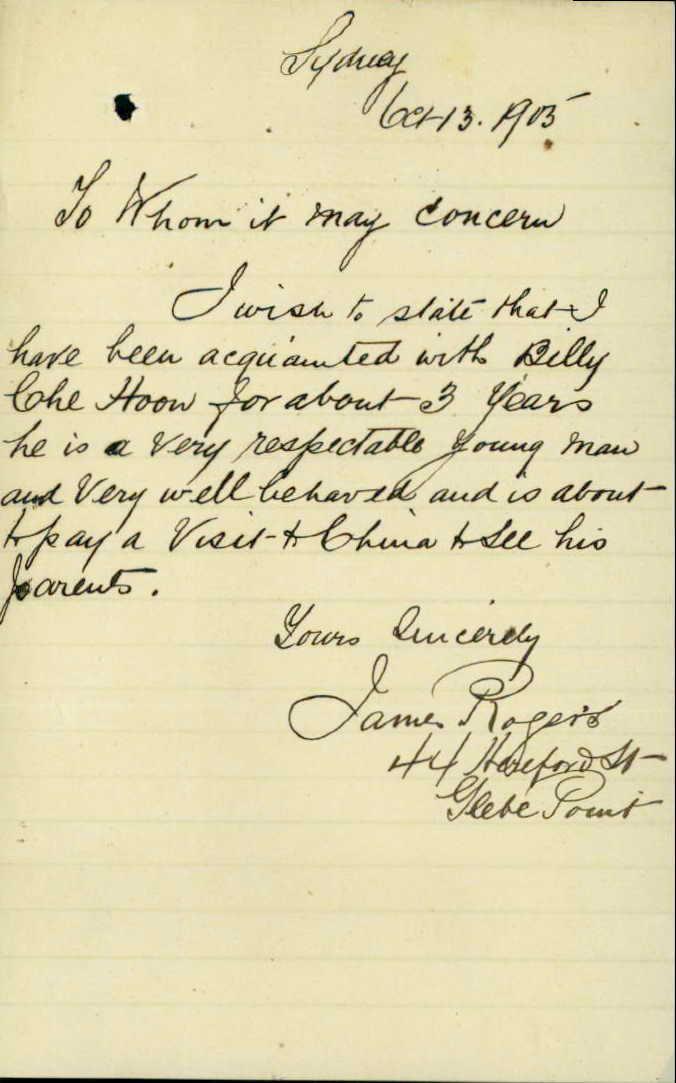 Sydney
Oct 13. 1905
To Whom it may concern
I wish to state that I
have been acquainted with Billy
Che Hoon for about 3 Years
he is a Very respectable young man
and Very well behaved and is about
to pay a Visit to China to See his
parents.
Yours Sincerely
James Rogers
44 Hereford St
Glebe Point